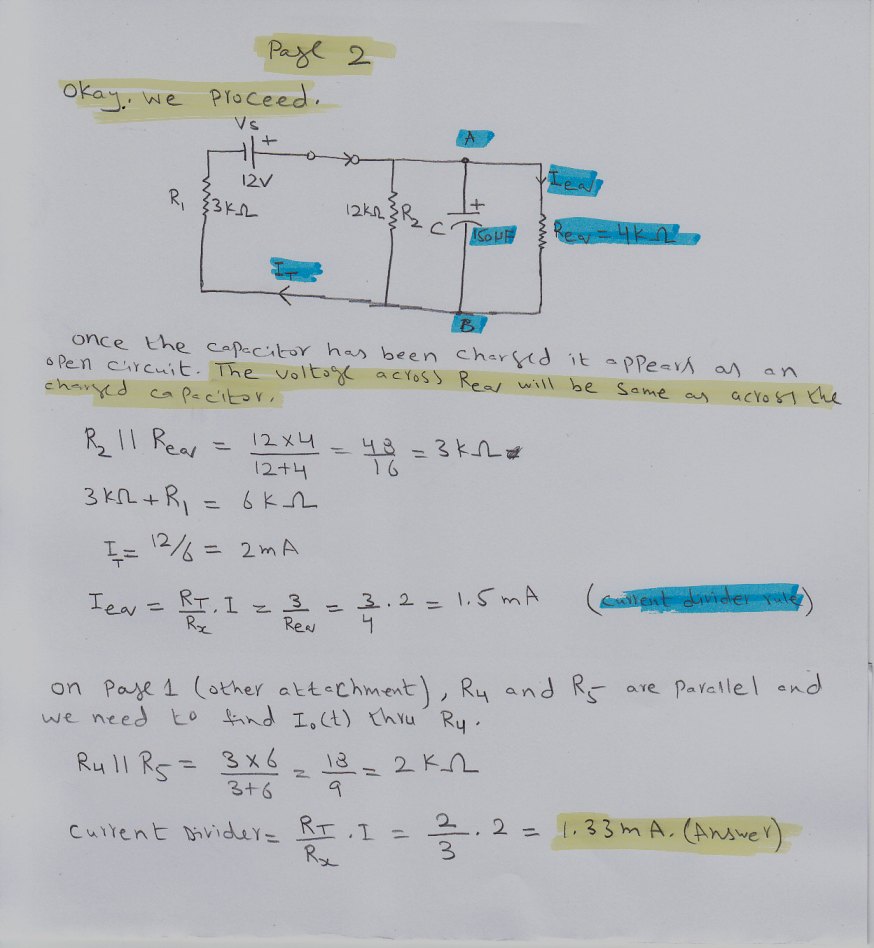 Page 2
Okay, we proceed.
Vs
+
12V
R1
3KΩ
12KΩ
R2
C
+
150µF
A
Ieqv
Reqv = 4KΩ
IT
B
once the capacitor has been charged it appears as an
open circuit. The voltage across Reqv will be same as across the
charged capacitor.
R2 || Reqv = 12×4/12+4 = 48/16 = 3KΩ
3KΩ + R1 = 6KΩ
IT = 12/6 = 2mA
Ieqv = RT/Rx . I = 3/Reqv = 3/4 . 2 = 1.5mA (current divider rule)
on page 1 (other attachment), R4 and R5 are parallel and
we need to find Io(t) thru R4.
R4 || R5 = 3×6/3+6 = 18/9 = 2KΩ
Current Divider = RT/Rx . I = 2/3 . 2 = 1.33mA. (Answer)